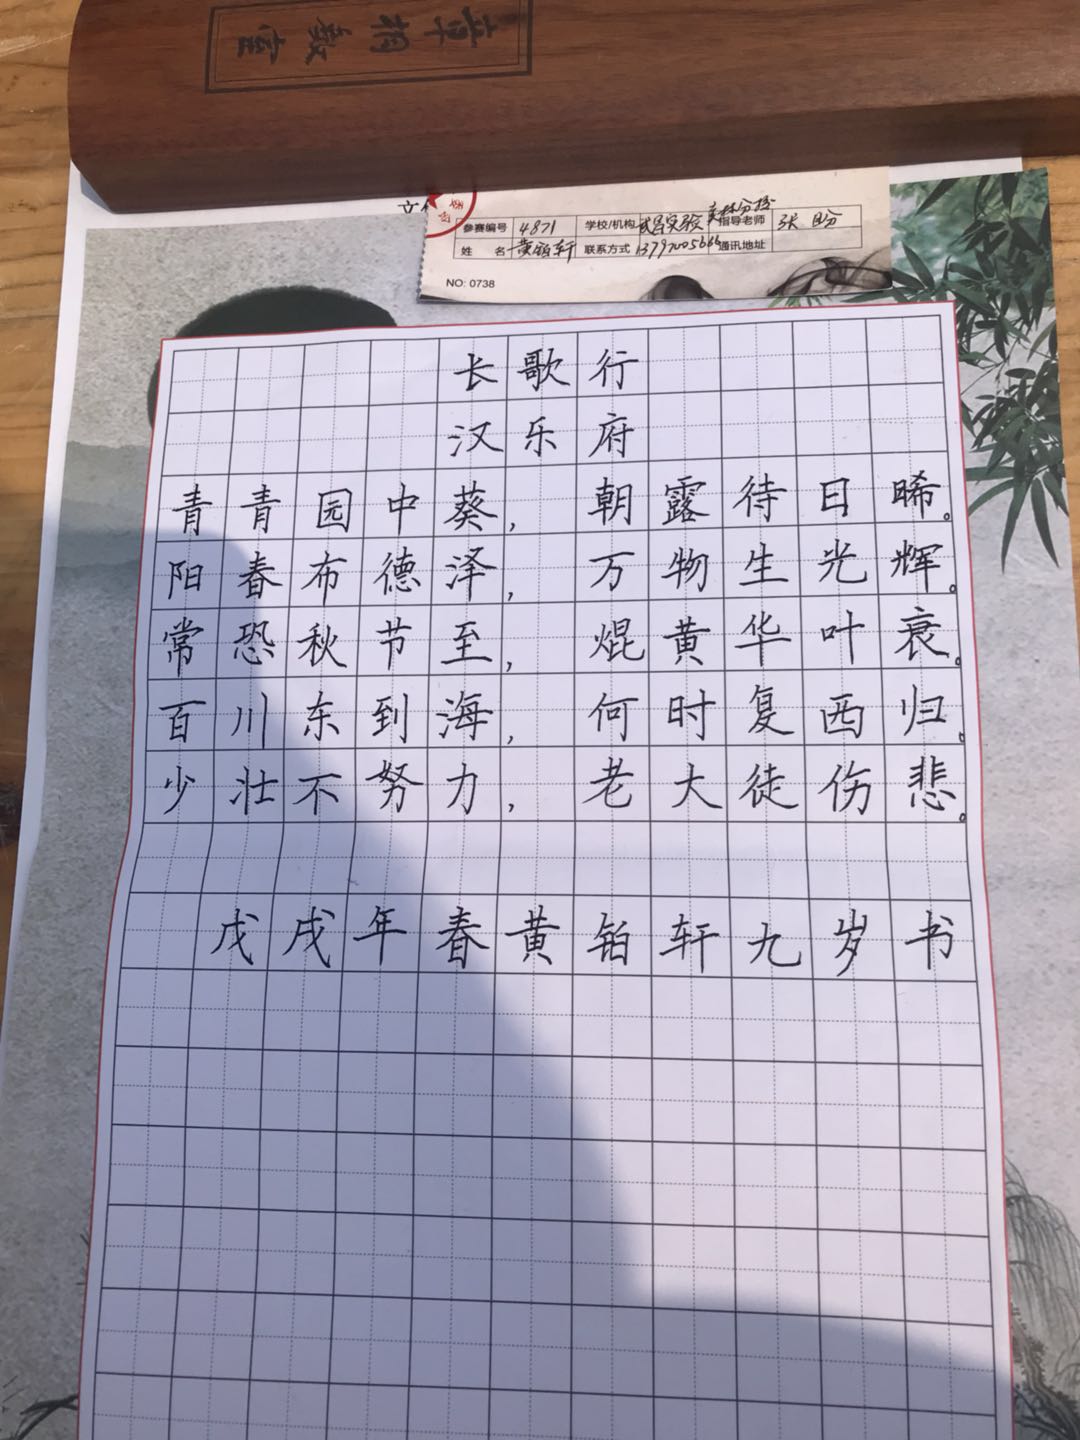 参赛编号 4871 学校/机构 武昌实验 指导老师 张
姓 名 黄铂轩 联系方式 通讯地址
NO: 0738
长歌行
汉乐府
青青园中葵，朝露待日晞。
阳春布德泽，万物生光辉。
常恐秋节至，焜黄华叶衰。
百川东到海，何时复西归。
少壮不努力，老大徒伤悲。
戊戌年春黄铂轩九岁书